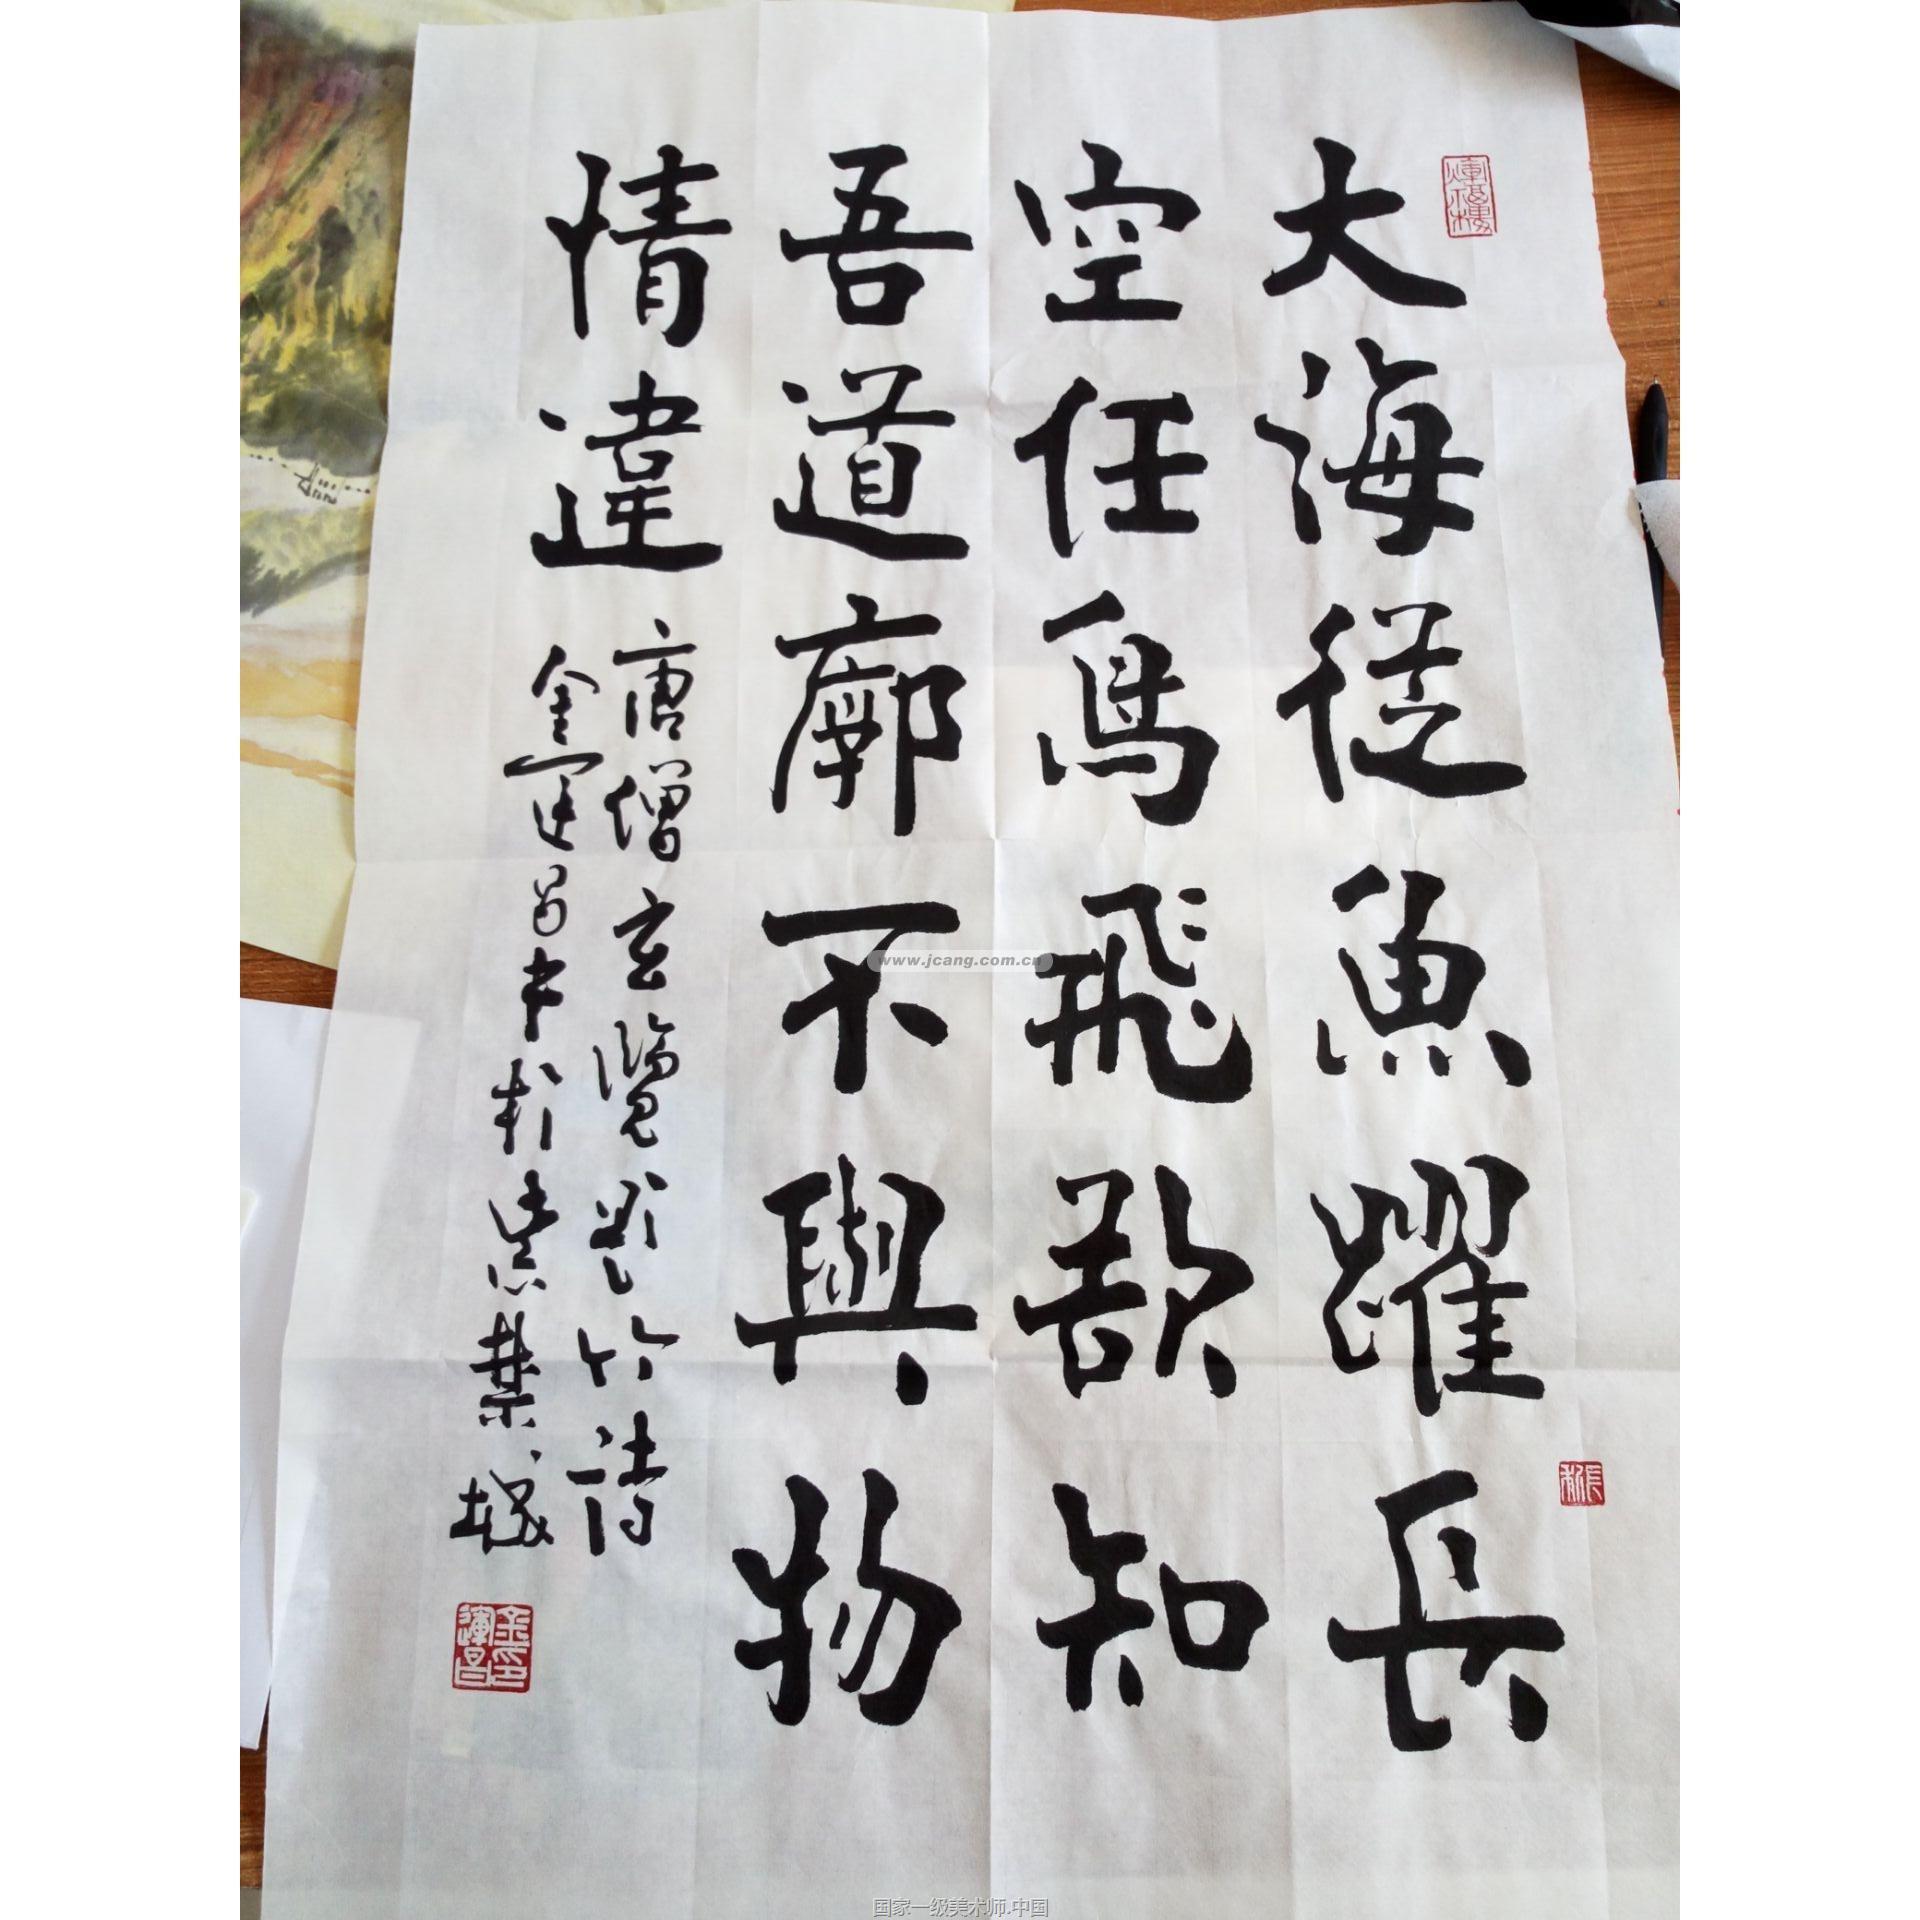 大海從魚躍長
空任鳥飛歆知
吾道廓不與物
情違
唐僧玄覽題竹詩
金運昌書於紫禁城
金運昌印
www.jcang.com.cn
国家一级美术师.中国